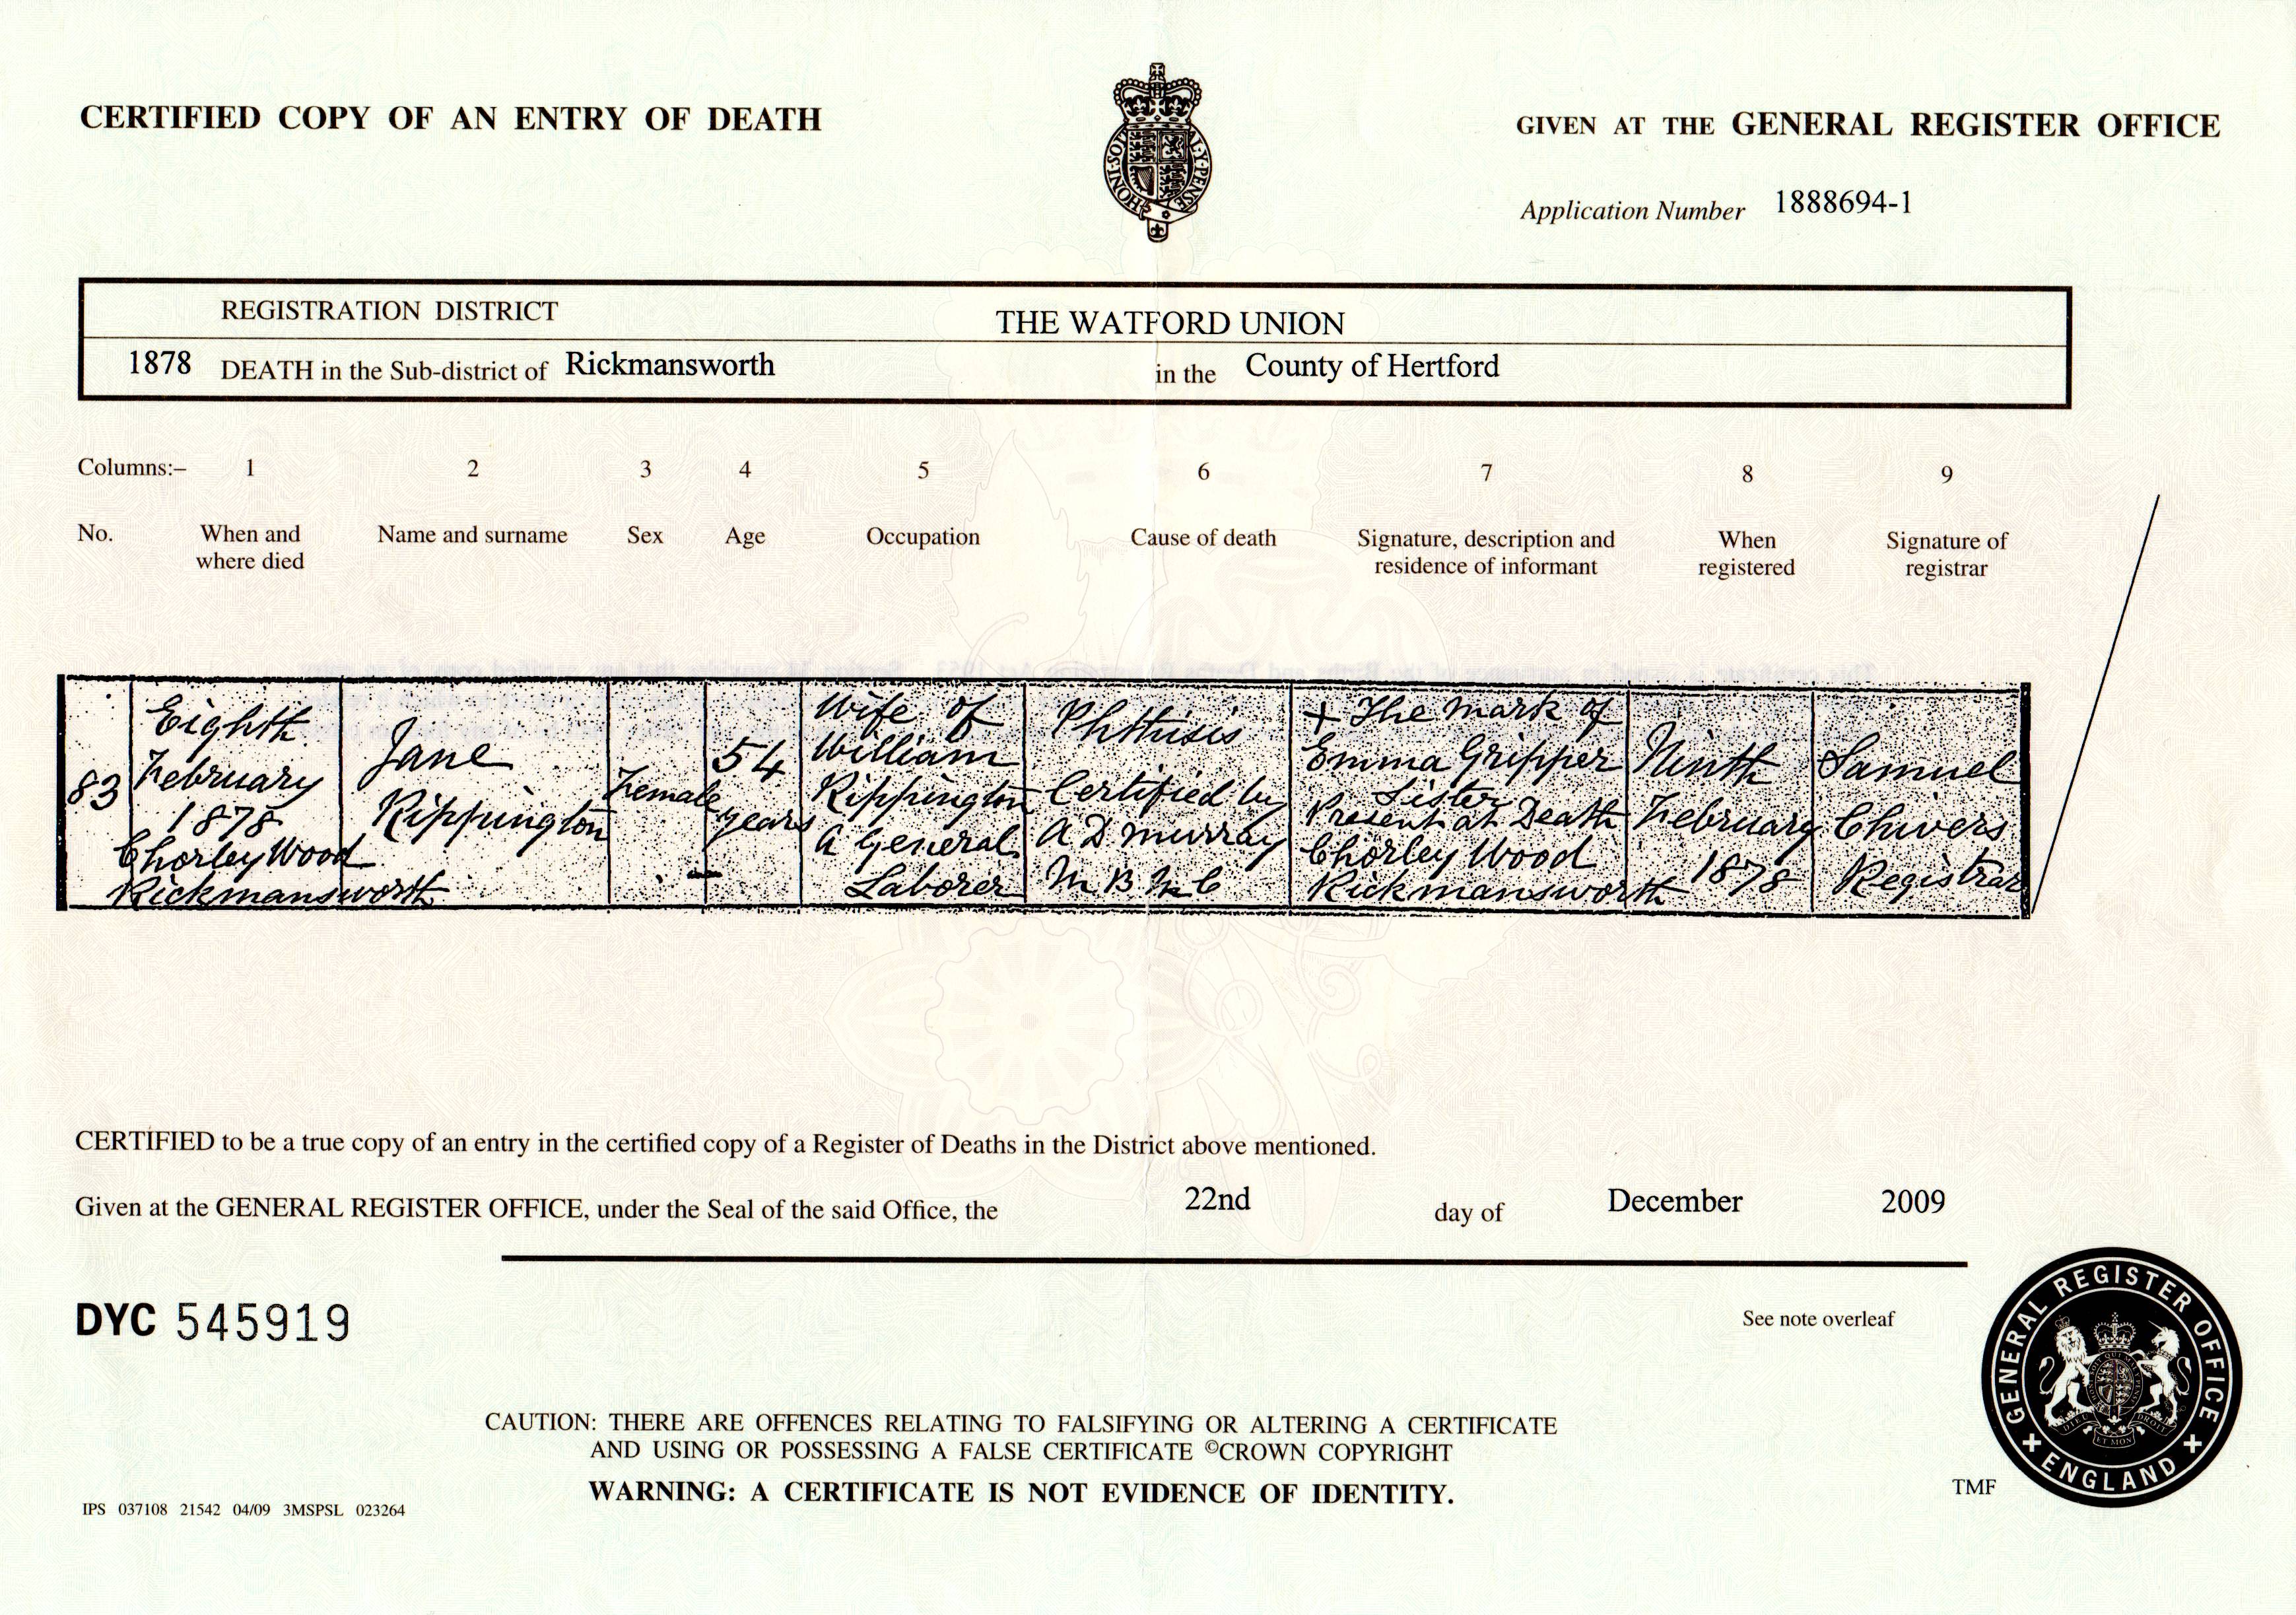 CERTIFIED COPY OF AN ENTRY OF DEATH
HONI·SOIT
MAL·Y·PENSE
GIVEN AT THE GENERAL REGISTER OFFICE
Application Number 1888694-1
REGISTRATION DISTRICT THE WATFORD UNION
1878 DEATH in the Sub-district of Rickmansworth in the County of Hertford
Columns:– 1 2 3 4 5 6 7 8 9
No.
When and
where died
Name and surname
Sex
Age
Occupation
Cause of death
Signature, description and
residence of informant
When
registered
Signature of
registrar
83
Eighth
February
1878
Chorley Wood
Rickmansworth
Jane
Rippington
Female
54
years
Wife of
William
Rippington
A General
Laborer
Phthisis
Certified by
A D Murray
M B
+ The mark of
Emma Gripper
Sister
Present at Death
Chorley Wood
Rickmansworth
Ninth
February
1878
Samuel
Chivers
Registrar
CERTIFIED to be a true copy of an entry in the certified copy of a Register of Deaths in the District above mentioned.
Given at the GENERAL REGISTER OFFICE, under the Seal of the said Office, the 22nd day of December 2009
DYC 545919
See note overleaf
CAUTION: THERE ARE OFFENCES RELATING TO FALSIFYING OR ALTERING A CERTIFICATE
AND USING OR POSSESSING A FALSE CERTIFICATE ©CROWN COPYRIGHT
WARNING: A CERTIFICATE IS NOT EVIDENCE OF IDENTITY.
IPS 037108 21542 04/09 3MSPSL 023264
TMF
GENERAL REGISTER OFFICE
ENGLAND